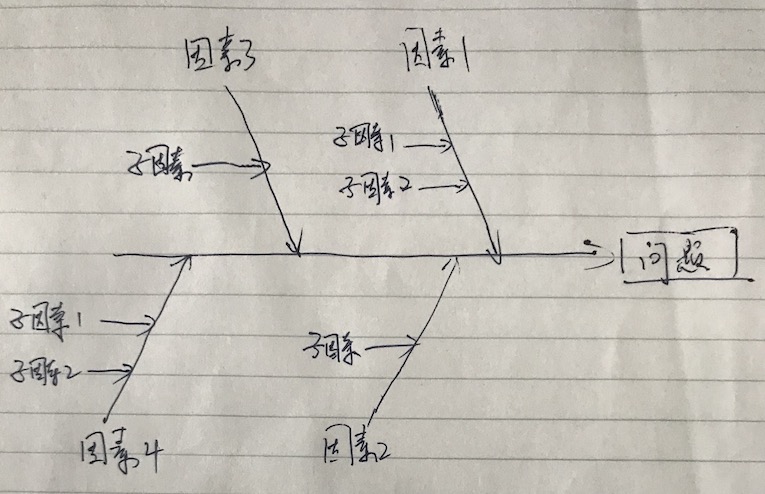 因素3
因素1
子因素1
子因素
子因素2
问题
子因素1
子因素
子因素2
因素4
因素2